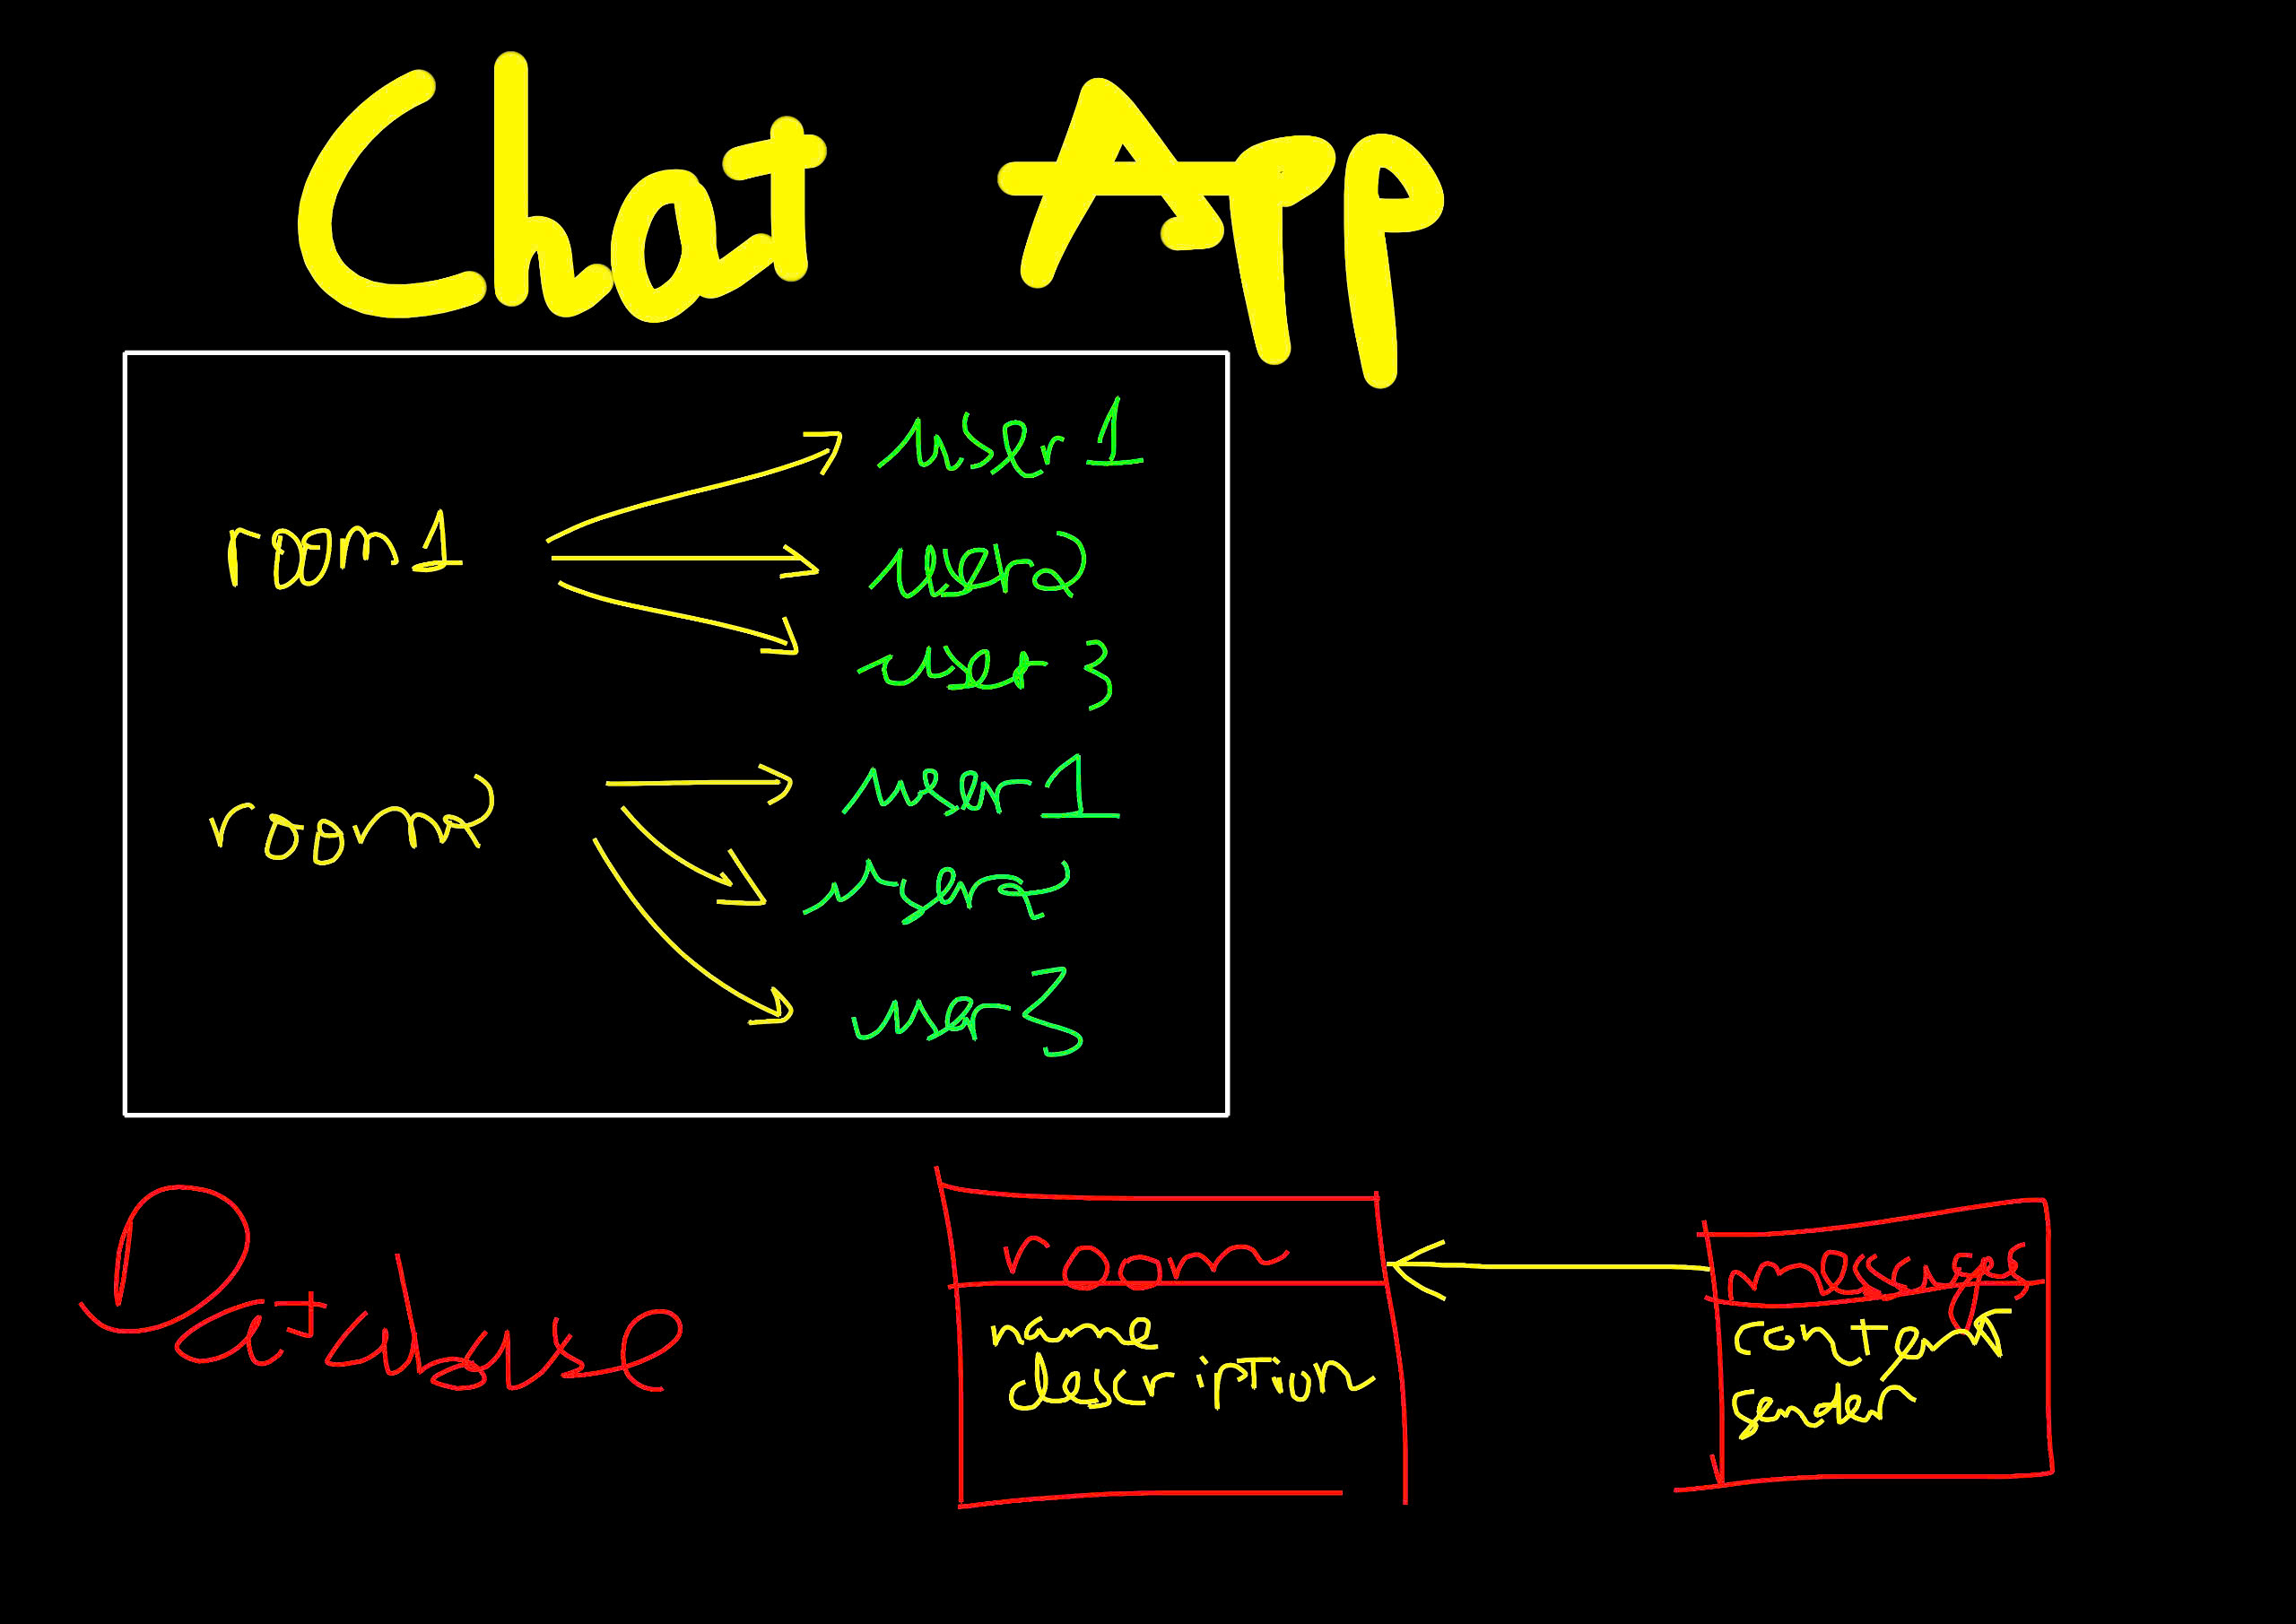 Chat App
room1
user1
user2
user3
room2
user1
user2
user3
Database
room
name
description
messages
content
sender